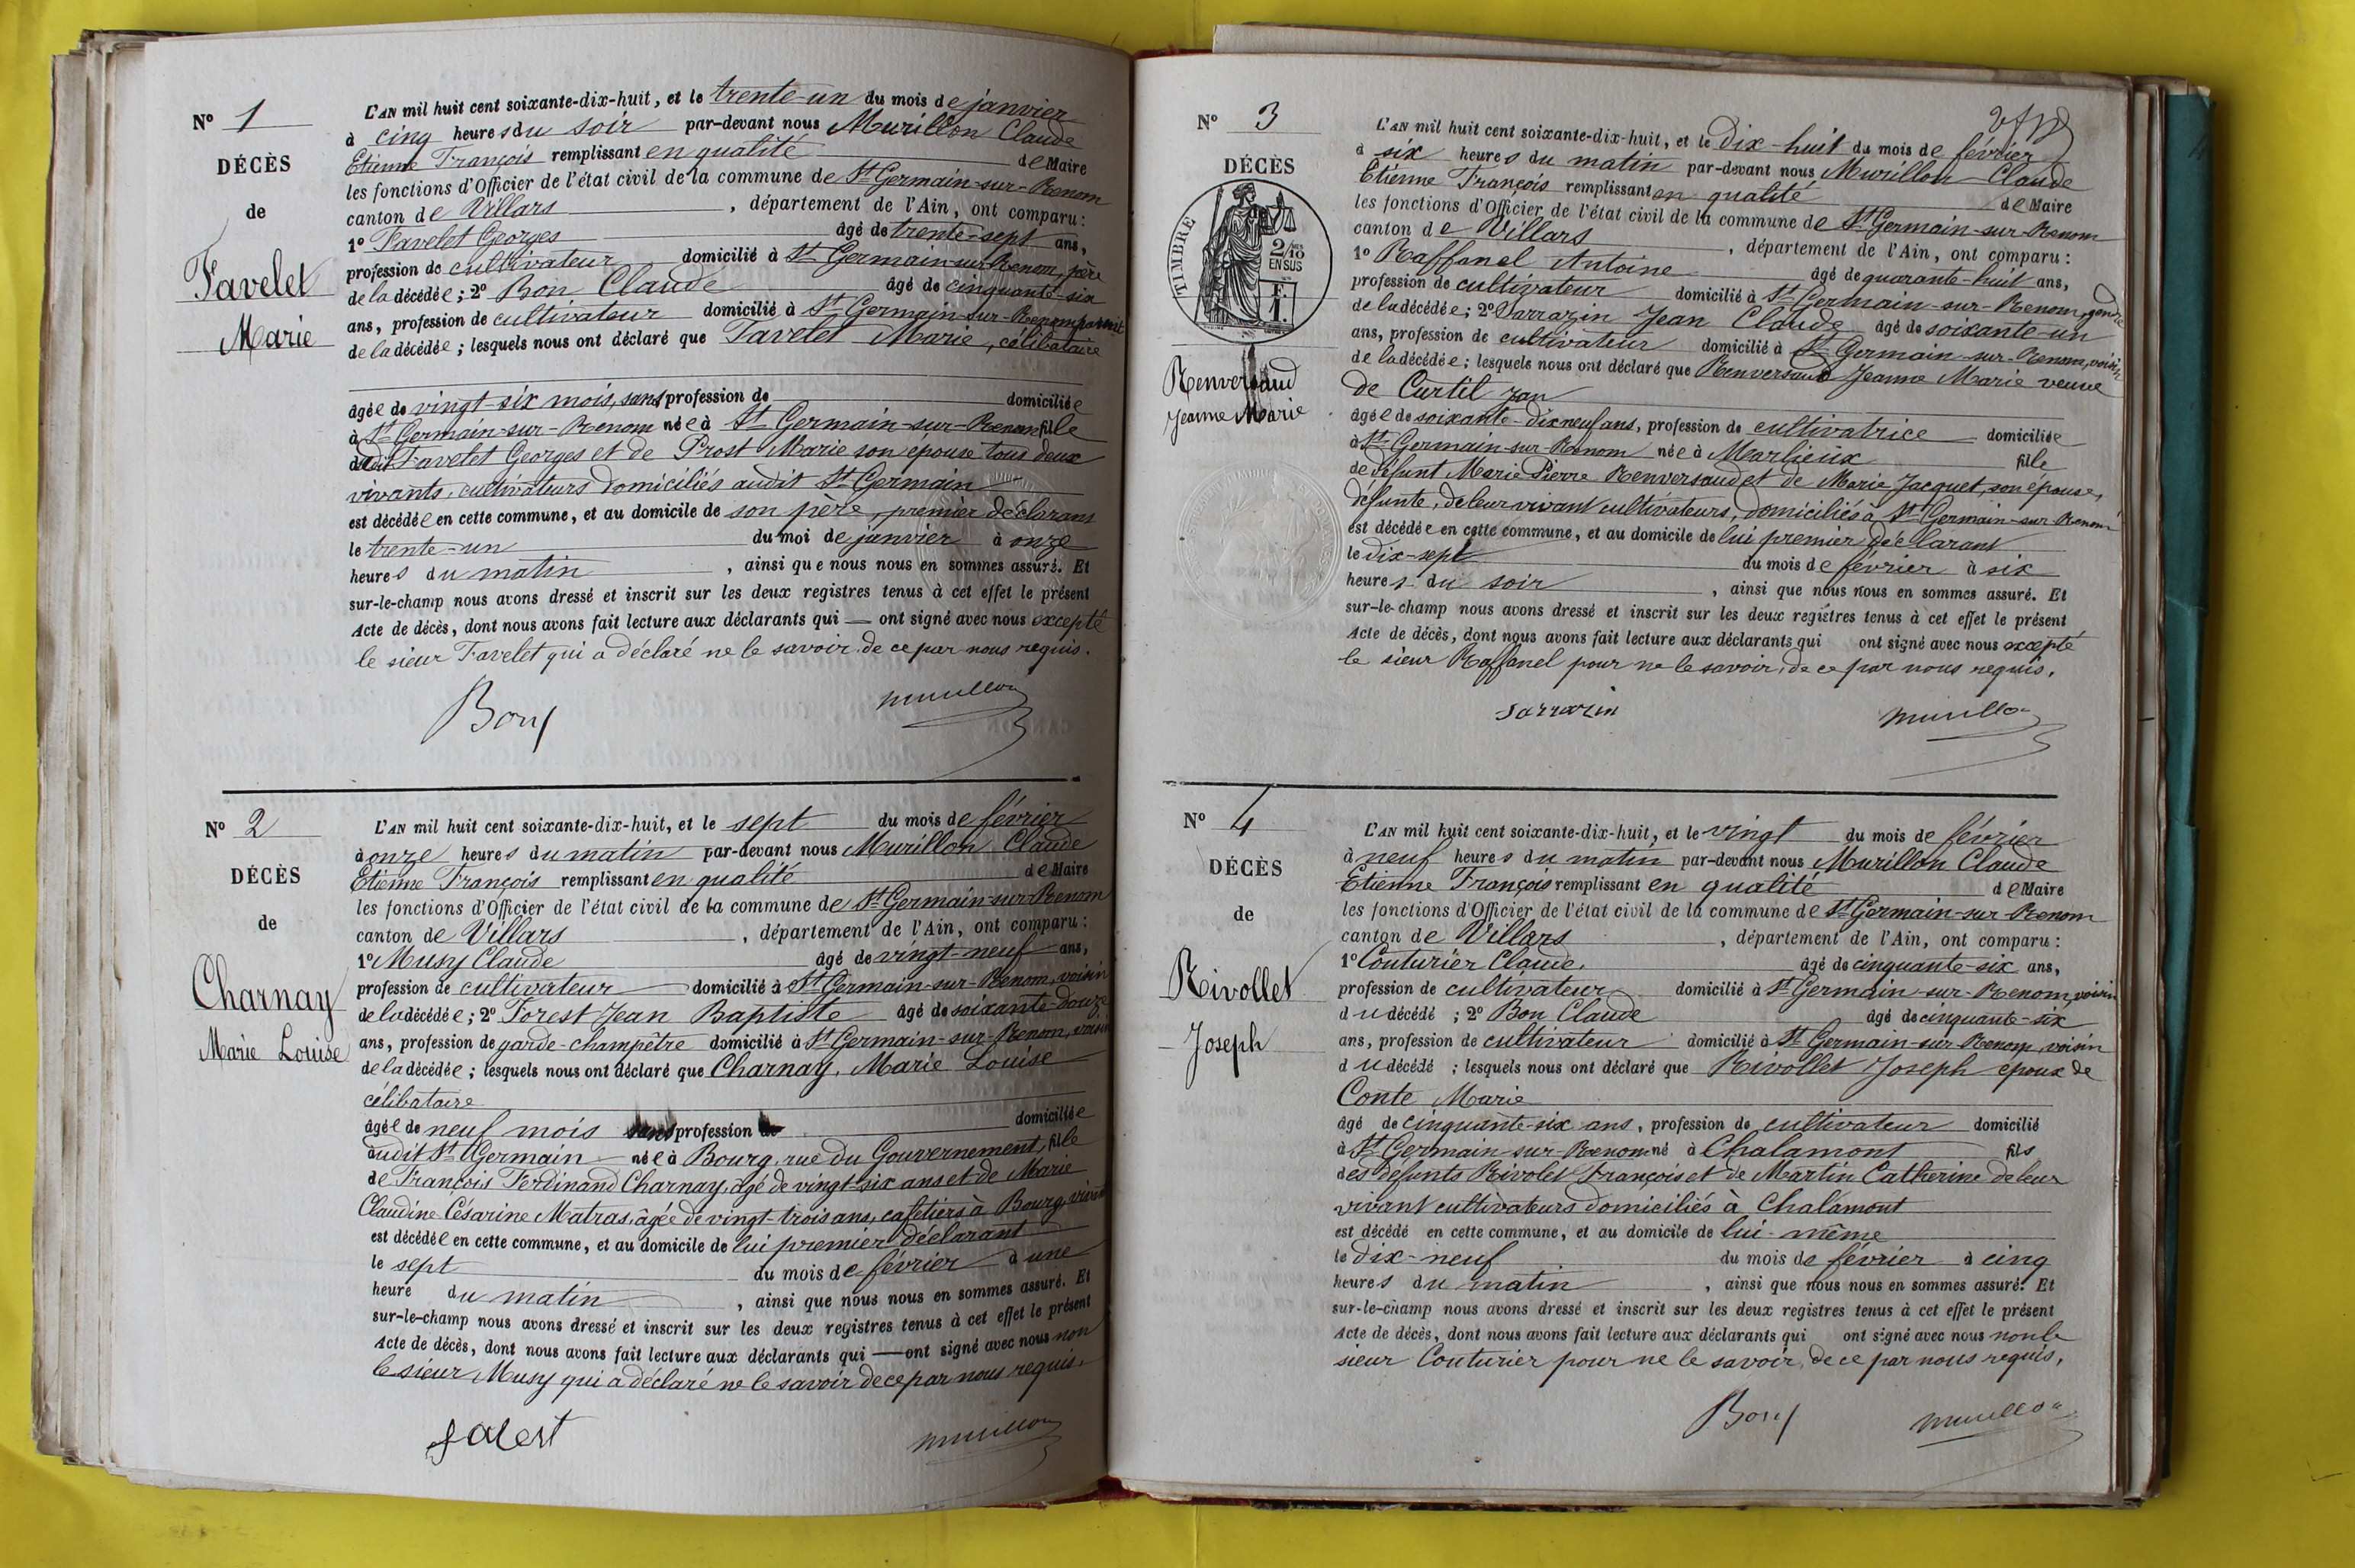 N° 1
DÉCÈS
de
Favelet
Marie
L'AN mil huit cent soixante-dix-huit, et le trente-un du mois de janvier
à cinq heures du soir par-devant nous Murillon Claude
Etienne François remplissant en qualité de Maire
les fonctions d'Officier de l'état civil de la commune de St Germain-sur-Renom
canton de Villars, département de l'Ain, ont comparu:
1° Favelet Georges âgé de trente-sept ans,
profession de cultivateur domicilié à St Germain-sur-Renom, père
de la décédée; 2° Bon Claude âgé de cinquante-six
ans, profession de cultivateur domicilié à St Germain-sur-Renom
de la décédée; lesquels nous ont déclaré que Favelet Marie, célibataire
âgée de vingt-six mois, sans profession de domiciliée
à St Germain-sur-Renom née à St Germain-sur-Renom fille
dudit Favelet Georges et de Prost Marie son épouse tous deux
vivants, cultivateurs domiciliés audit St Germain
est décédée en cette commune, et au domicile de son père, premier déclarant
le trente-un du moi de janvier à onze
heures du matin, ainsi que nous nous en sommes assuré. Et
sur-le-champ nous avons dressé et inscrit sur les deux registres tenus à cet effet le présent
Acte de décès, dont nous avons fait lecture aux déclarants qui — ont signé avec nous excepté
le sieur Favelet qui a déclaré ne le savoir de ce par nous requis.
Bon murillon
N° 2
DÉCÈS
de
Charnay
Marie Louise
L'AN mil huit cent soixante-dix-huit, et le sept du mois de février
à onze heures du matin par-devant nous Murillon Claude
Etienne François remplissant en qualité de Maire
les fonctions d'Officier de l'état civil de la commune de St Germain-sur-Renom
canton de Villars, département de l'Ain, ont comparu:
1° Musy Claude âgé de vingt-neuf ans,
profession de cultivateur domicilié à St Germain-sur-Renom, voisin
de la décédée; 2° Forest Jean Baptiste âgé de soixante-douze
ans, profession de garde-champêtre domicilié à St Germain-sur-Renom, voisin
de la décédée; lesquels nous ont déclaré que Charnay, Marie Louise
célibataire
âgée de neuf mois sans profession domiciliée
audit St Germain née à Bourg, rue du Gouvernement, fille
de François Ferdinand Charnay, âgé de vingt-six ans et de Marie
Claudine Césarine Matras, âgée de vingt-trois ans, cafetiers à Bourg, vivants
est décédée en cette commune, et au domicile de lui premier déclarant
le sept du mois de février à une
heure du matin, ainsi que nous nous en sommes assuré. Et
sur-le-champ nous avons dressé et inscrit sur les deux registres tenus à cet effet le présent
Acte de décès, dont nous avons fait lecture aux déclarants qui — ont signé avec nous non
le sieur Musy qui a déclaré ne le savoir de ce par nous requis.
forest murillon
N° 3
DÉCÈS
TIMBRE
2/10
EN SUS
F.
1.
Renversaud
Jeanne Marie
L'AN mil huit cent soixante-dix-huit, et le Dix-huit du mois de février
à six heures du matin par-devant nous Murillon Claude
Etienne François remplissant en qualité de Maire
les fonctions d'Officier de l'état civil de la commune de St Germain-sur-Renom
canton de Villars, département de l'Ain, ont comparu:
1° Raffanel Antoine âgé de quarante-huit ans,
profession de cultivateur domicilié à St Germain-sur-Renom, gendre
de la décédée; 2° Sarrazin Jean Claude âgé de soixante-un
ans, profession de cultivateur domicilié à St Germain-sur-Renom, voisin
de la décédée; lesquels nous ont déclaré que Renversaud Jeanne Marie veuve
de Curtil
âgée de soixante-dix neuf ans, profession de cultivatrice domiciliée
à St Germain-sur-Renom née à Marlieux fille
de défunt Marie Pierre Renversaud et de Marie Jacquet, son épouse,
défunte, de leur vivant cultivateurs, domiciliés à St Germain-sur-Renom
est décédée en cette commune, et au domicile de lui premier déclarant
le dix-sept du mois de février à six
heures du soir, ainsi que nous nous en sommes assuré. Et
sur-le-champ nous avons dressé et inscrit sur les deux registres tenus à cet effet le présent
Acte de décès, dont nous avons fait lecture aux déclarants qui ont signé avec nous excepté
le sieur Raffanel pour ne le savoir, de ce par nous requis.
Sarrazin murillon
N° 4
DÉCÈS
de
Rivollet
Joseph
L'AN mil huit cent soixante-dix-huit, et le vingt du mois de février
à neuf heures du matin par-devant nous Murillon Claude
Etienne François remplissant en qualité de Maire
les fonctions d'Officier de l'état civil de la commune de St Germain-sur-Renom
canton de Villars, département de l'Ain, ont comparu:
1° Couturier Claude, âgé de cinquante-six ans,
profession de cultivateur domicilié à St Germain-sur-Renom, voisin
du décédé; 2° Bon Claude âgé de cinquante-six
ans, profession de cultivateur domicilié à St Germain-sur-Renom, voisin
du décédé; lesquels nous ont déclaré que Rivollet Joseph époux de
Conte Marie
âgé de cinquante-six ans, profession de cultivateur domicilié
à St Germain-sur-Renom né à Chalamont fils
des défunts Rivolet François et de Martin Catherine de leur
vivant cultivateurs domiciliés à Chalamont
est décédé en cette commune, et au domicile de lui-même
le dix-neuf du mois de février à cinq
heures du matin, ainsi que nous nous en sommes assuré. Et
sur-le-champ nous avons dressé et inscrit sur les deux registres tenus à cet effet le présent
Acte de décès, dont nous avons fait lecture aux déclarants qui ont signé avec nous non le
sieur Couturier pour ne le savoir, de ce par nous requis,
Bon murillon